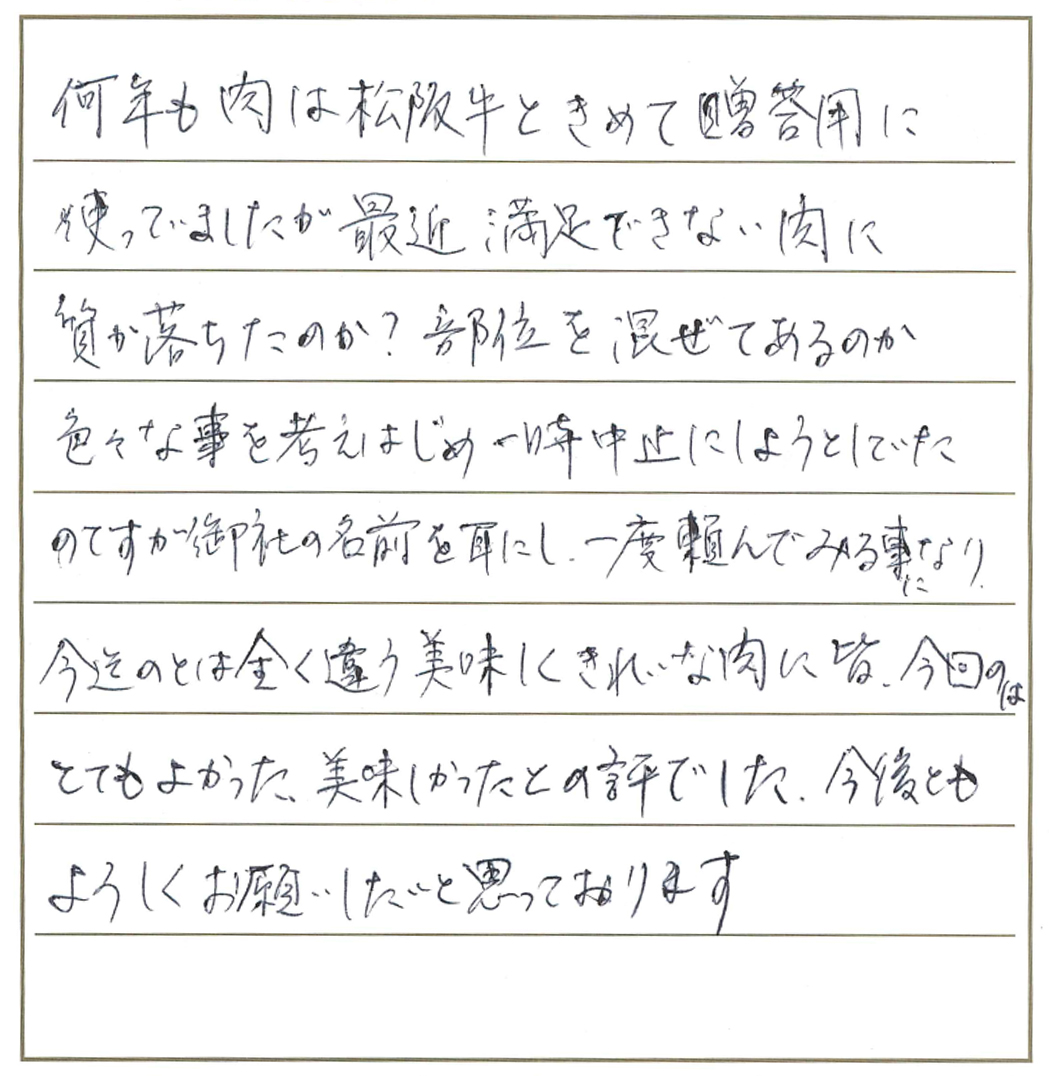 何年も肉は松阪牛ときめて贈答用に
使っていましたが最近満足できない肉に
質が落ちたのか？部位を混ぜてあるのか
色々な事を考えはじめ一時中止にしようとしていた
のですが御社の名前を耳にし、一度頼んでみる事になり、
今迄のとは全く違う美味しくきれいな肉に皆、今回のは
とてもよかった、美味しかったとの評でした、今後とも
よろしくお願いしたいと思っております